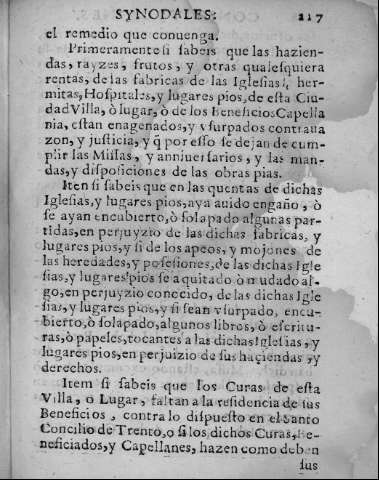 SYNODALES: 217
el remedio que conuenga.
Primeramente si sabeis que las hazien-
das, rayzes, frutos, y otras qualesquiera
rentas, de las fabricas de las Iglesias, her-
mitas, Hospitales, y lugares pios, de esta Ciu-
dad Villa, ò lugar, ò de los Beneficios Capella
nia, estan enagenados, y vsurpados contra la
zon, y justicia, y q̃ por esso se dejan de cum-
plir las Missas, y anniuersarios, y las man-
das, y disposiciones de las obras pias.
Iten si sabeis que en las quentas de dichas
Iglesias, y lugares pios, aya auido engaño, ò
se ayan encubierto, ò solapado algunas par-
tidas, en perjuyzio de las dichas fabricas, y
lugares pios, y si de los apeos, y mojones de
las heredades, y posesiones, de las dichas Igle
sias, y lugares pios se a quitado ò mudado al-
go, en perjuyzio conocido, de las dichas Igle
sias, y lugares pios, y si sean vsurpado, encu-
bierto, ò solapado, algunos libros, ò escritu-
ras, ò papeles, tocantes a las dichas Iglesias, y
lugares pios, en perjuizio de sus haçiendas, y
derechos.
Item si sabeis que los Curas de esta
Villa, o Lugar, faltan a la residencia de sus
Beneficios, contra lo dispuesto en el Santo
Concilio de Trento, o si los dichos Curas, Be-
neficiados, y Capellanes, hazen como deben
sus